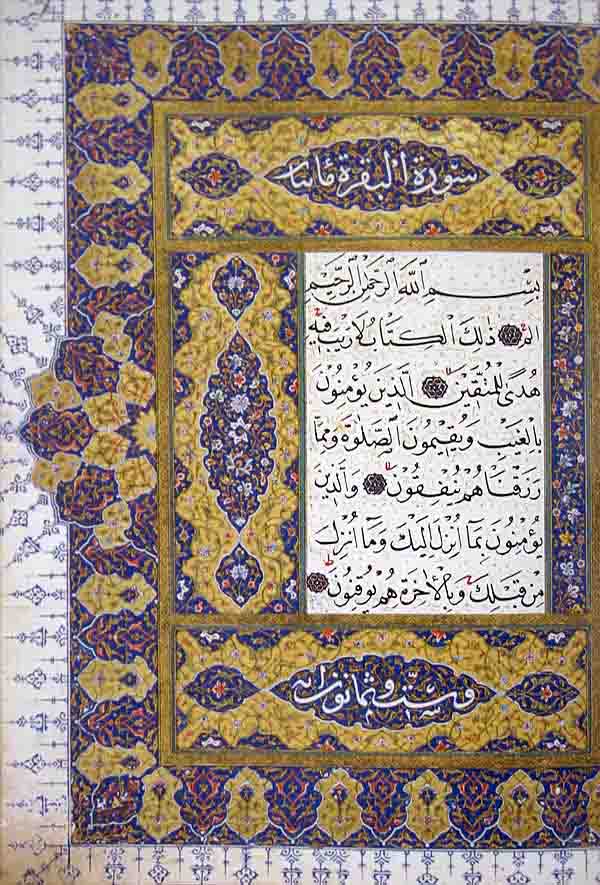 سورة البقرة مائتا
بسم الله الرحمن الرحيم
الم ذلك الكتاب لا ريب فيه
هدى للمتقين الذين يؤمنون
بالغيب ويقيمون الصلوة ومما
رزقناهم ينفقون والذين
يؤمنون بما أنزل إليك وما أنزل
من قبلك وبالآخرة هم يوقنون
وست وثمانون آية